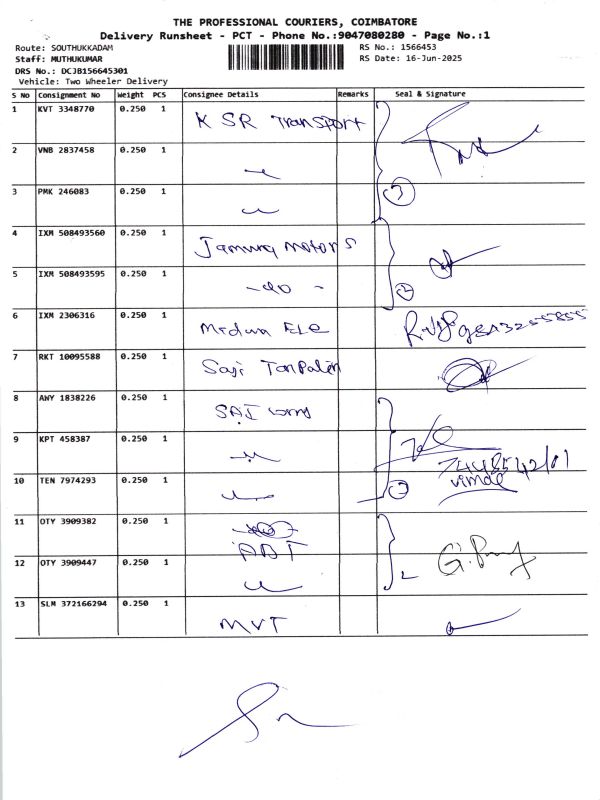 THE PROFESSIONAL COURIERS, COIMBATORE
Delivery Runsheet - PCT - Phone No.:9047080280 - Page No.:1
Route: SOUTHUKKADAM RS No.: 1566453
Staff: MUTHUKUMAR RS Date: 16-Jun-2025
DRS No.: DCJB156645301
Vehicle: Two Wheeler Delivery
S No Consignment No Weight PCS Consignee Details Remarks Seal & Signature
1 KVT 3348770 0.250 1 K SR Transport
2 VNB 2837458 0.250 1
3 PMK 246083 0.250 1 3
4 IXM 508493560 0.250 1 Jamuna motors
5 IXM 508493595 0.250 1 -do- 2
6 IXM 2306316 0.250 1 Ele
7 RKT 10095588 0.250 1
8 AWY 1838226 0.250 1 SAI
9 KPT 458387 0.250 1
10 TEN 7974293 0.250 1 vimal
11 OTY 3909382 0.250 1 ABT
12 OTY 3909447 0.250 1 2
13 SLM 372166294 0.250 1 MVT